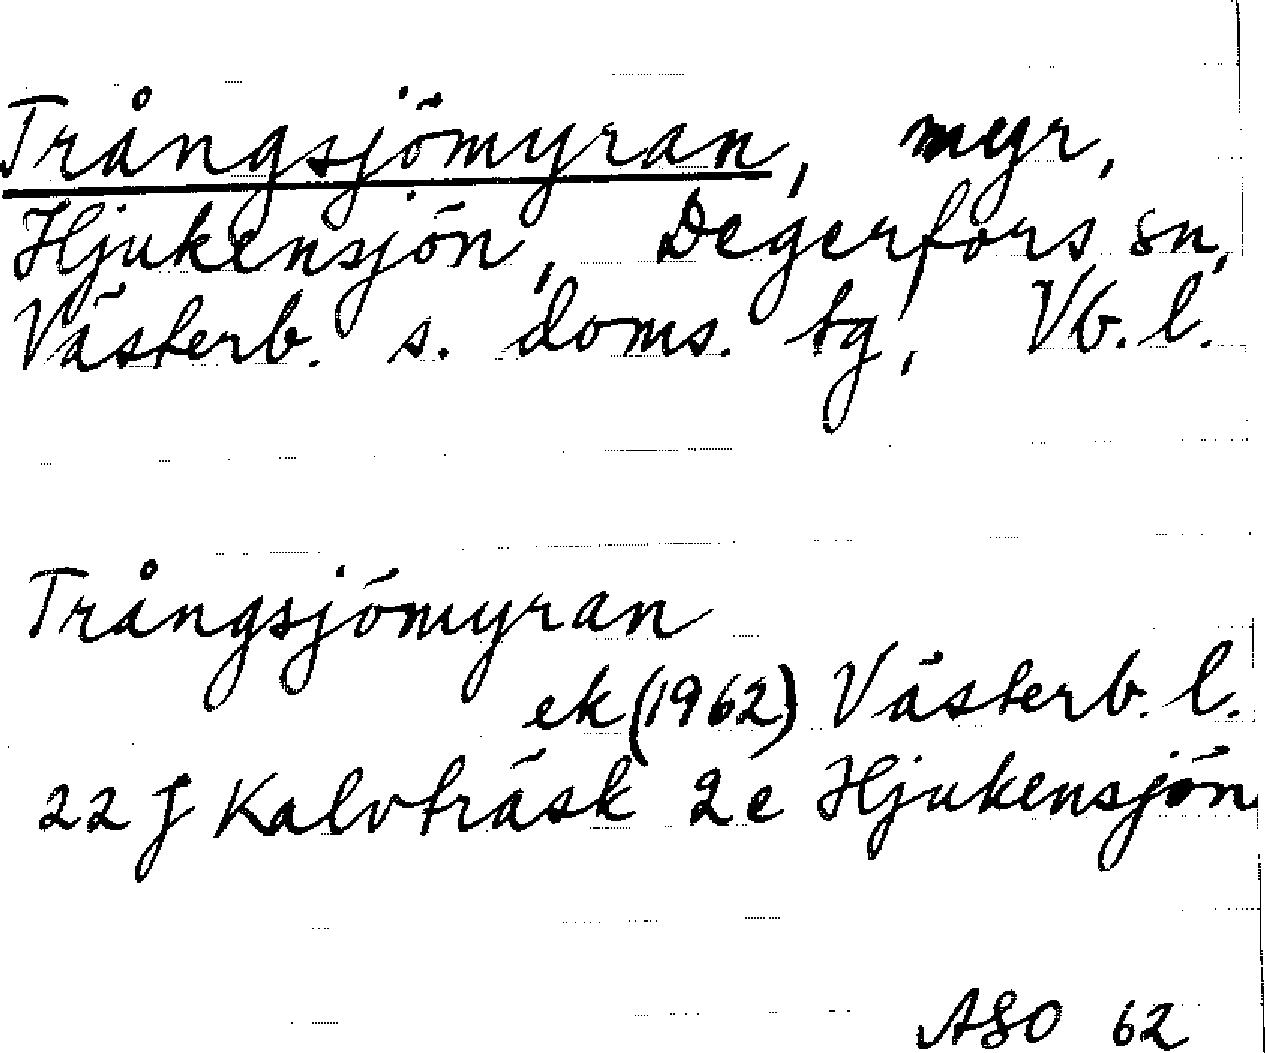 Trångsjömyran, myr,
Hjukensjön, Degerfors sn,
Västerb. s. doms. tg, Vb. l.
Trångsjömyran
ek (1962) Västerb. l.
22 J Kalvträsk 2 e Hjukensjön
ASO 62